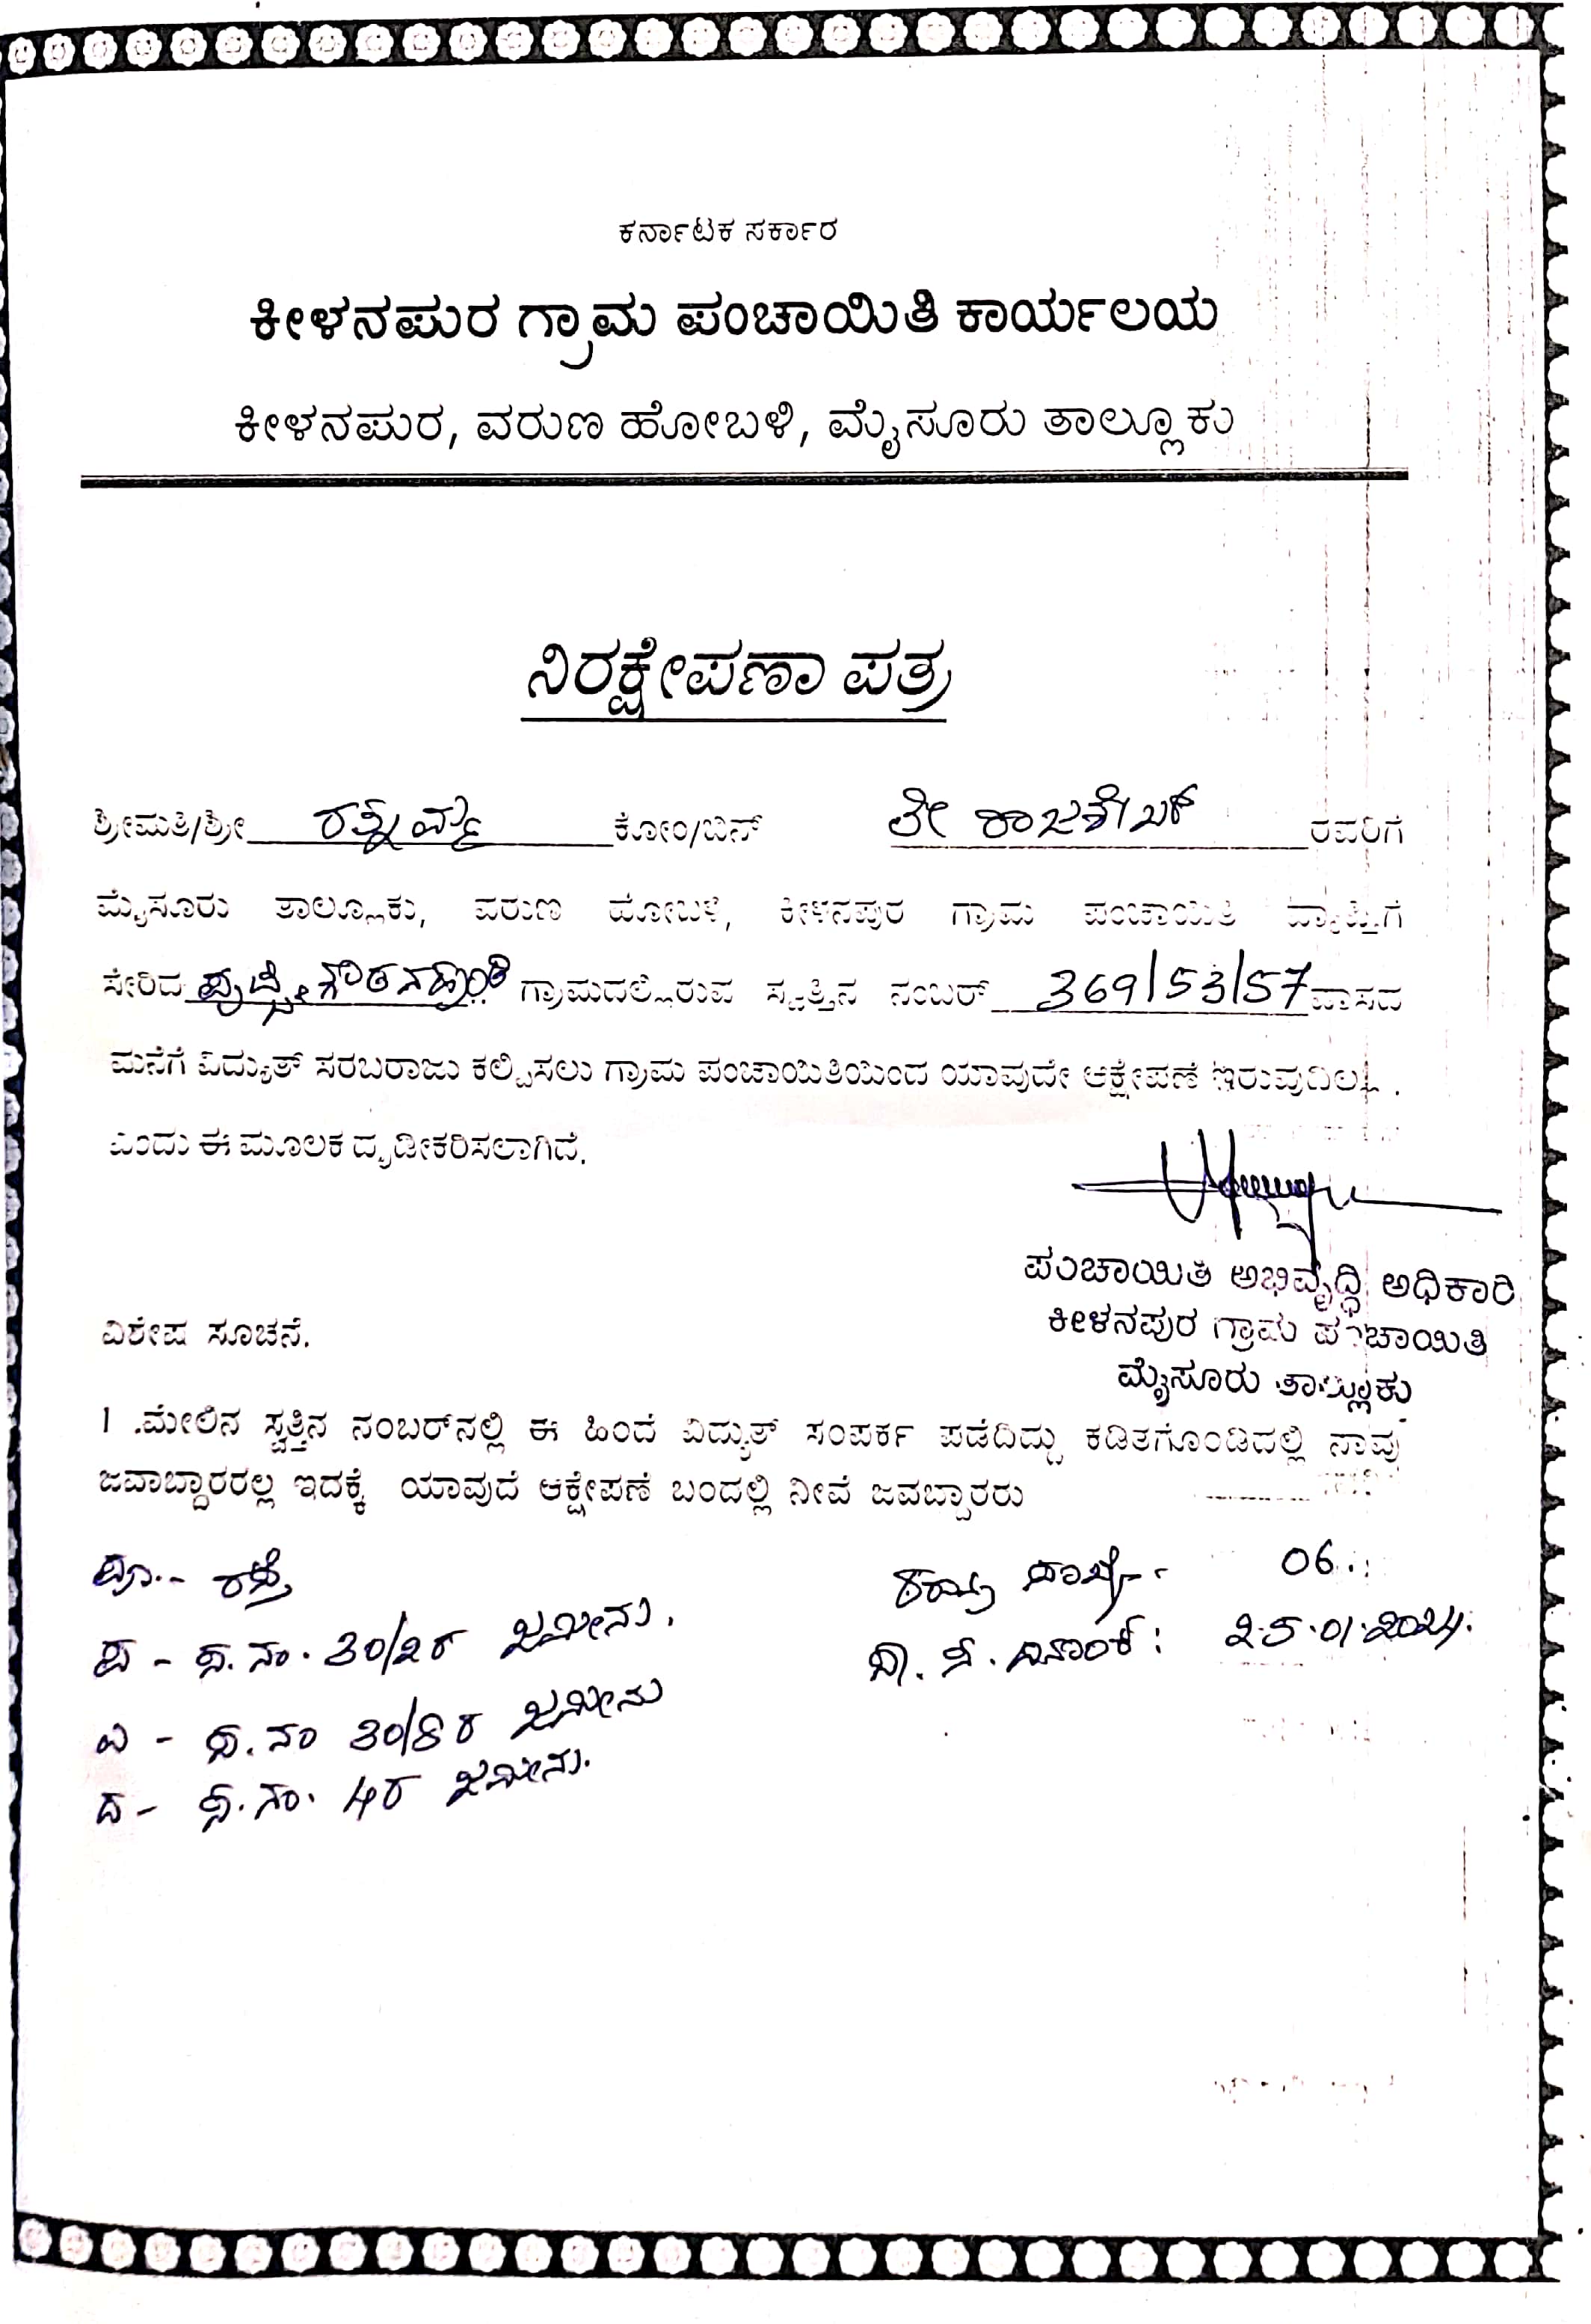 ಕರ್ನಾಟಕ ಸರ್ಕಾರ
ಕೀಳನಪುರ ಗ್ರಾಮ ಪಂಚಾಯಿತಿ ಕಾರ್ಯಲಯ
ಕೀಳನಪುರ, ವರುಣ ಹೋಬಳಿ, ಮೈಸೂರು ತಾಲ್ಲೂಕು
ನಿರಕ್ಷೇಪಣಾ ಪತ್ರ
ಶ್ರೀಮತಿ/ಶ್ರೀ ರತ್ನಮ್ಮ ಕೋಂ/ಬಿನ್ ರಾಜಶೇಖರ್ ರವರಿಗೆ
ಮೈಸೂರು ತಾಲ್ಲೂಕು, ವರುಣ ಹೋಬಳಿ, ಕೀಳನಪುರ ಗ್ರಾಮ ಪಂಚಾಯಿತಿ ವ್ಯಾಪ್ತಿಗೆ
ಸೇರಿದ ಪುಟ್ಟೇಗೌಡನಹುಂಡಿ ಗ್ರಾಮದಲ್ಲಿರುವ ಸ್ವತ್ತಿನ ನಂಬರ್ 369/53/57 ವಾಸದ
ಮನೆಗೆ ವಿದ್ಯುತ್ ಸರಬರಾಜು ಕಲ್ಪಿಸಲು ಗ್ರಾಮ ಪಂಚಾಯಿತಿಯಿಂದ ಯಾವುದೇ ಆಕ್ಷೇಪಣೆ ಇರುವುದಿಲ್ಲ .
ಎಂದು ಈ ಮೂಲಕ ದೃಡೀಕರಿಸಲಾಗಿದೆ.
ಪಂಚಾಯಿತಿ ಅಭಿವೃದ್ಧಿ ಅಧಿಕಾರಿ
ಕೀಳನಪುರ ಗ್ರಾಮ ಪಂಚಾಯಿತಿ
ಮೈಸೂರು ತಾಲ್ಲೂಕು
ವಿಶೇಷ ಸೂಚನೆ.
1 .ಮೇಲಿನ ಸ್ವತ್ತಿನ ನಂಬರ್‌ನಲ್ಲಿ ಈ ಹಿಂದೆ ವಿದ್ಯುತ್ ಸಂಪರ್ಕ ಪಡೆದಿದ್ದು ಕಡಿತಗೊಂಡಿದಲ್ಲಿ ನಾವು
ಜವಾಬ್ದಾರರಲ್ಲ ಇದಕ್ಕೆ ಯಾವುದೆ ಆಕ್ಷೇಪಣೆ ಬಂದಲ್ಲಿ ನೀವೆ ಜವಬ್ದಾರರು
ಪೂ.- ರಸ್ತೆ
ಪ - ಸ.ನಂ. 30/2ರ ಜಮೀನು.
ಉ - ಸ.ನಂ 30/8ರ ಜಮೀನು
ದ - ಸ.ನಂ. 4ರ ಜಮೀನು.
06
ದಿನಾಂಕ: 25.01.2024.